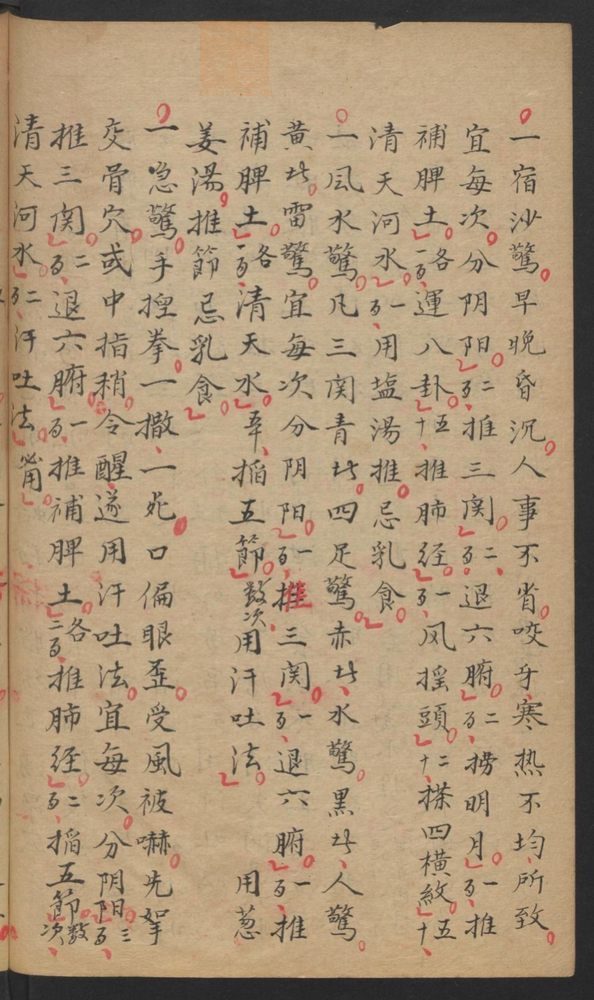 一宿沙驚早晚昏沉人事不省咬牙寒热不均所致
宜每次分阴阳二百推三関二百退六腑二百捞明月一百推
補脾土各一百運八卦五十推肺经一百风摇頭二十搽四横紋五十
清天河水一百用塩湯推忌乳食
一凨水驚凡三関青此四足驚赤此水驚黑此人驚
黄此雷驚宜每次分阴阳一百推三関一百退六腑一百推
補脾土各一百清天水掐五節数次用汗吐法用葱
姜湯推節忌乳食
一急驚手揑拳一撒一死口偏眼歪受風被嚇先拏
交骨穴或中指稍令醒遂用汗吐法宜每次分阴阳三百
推三関二百退六腑一百推補脾土各二百推肺经二百掐五節数次
清天河水二百汗吐法